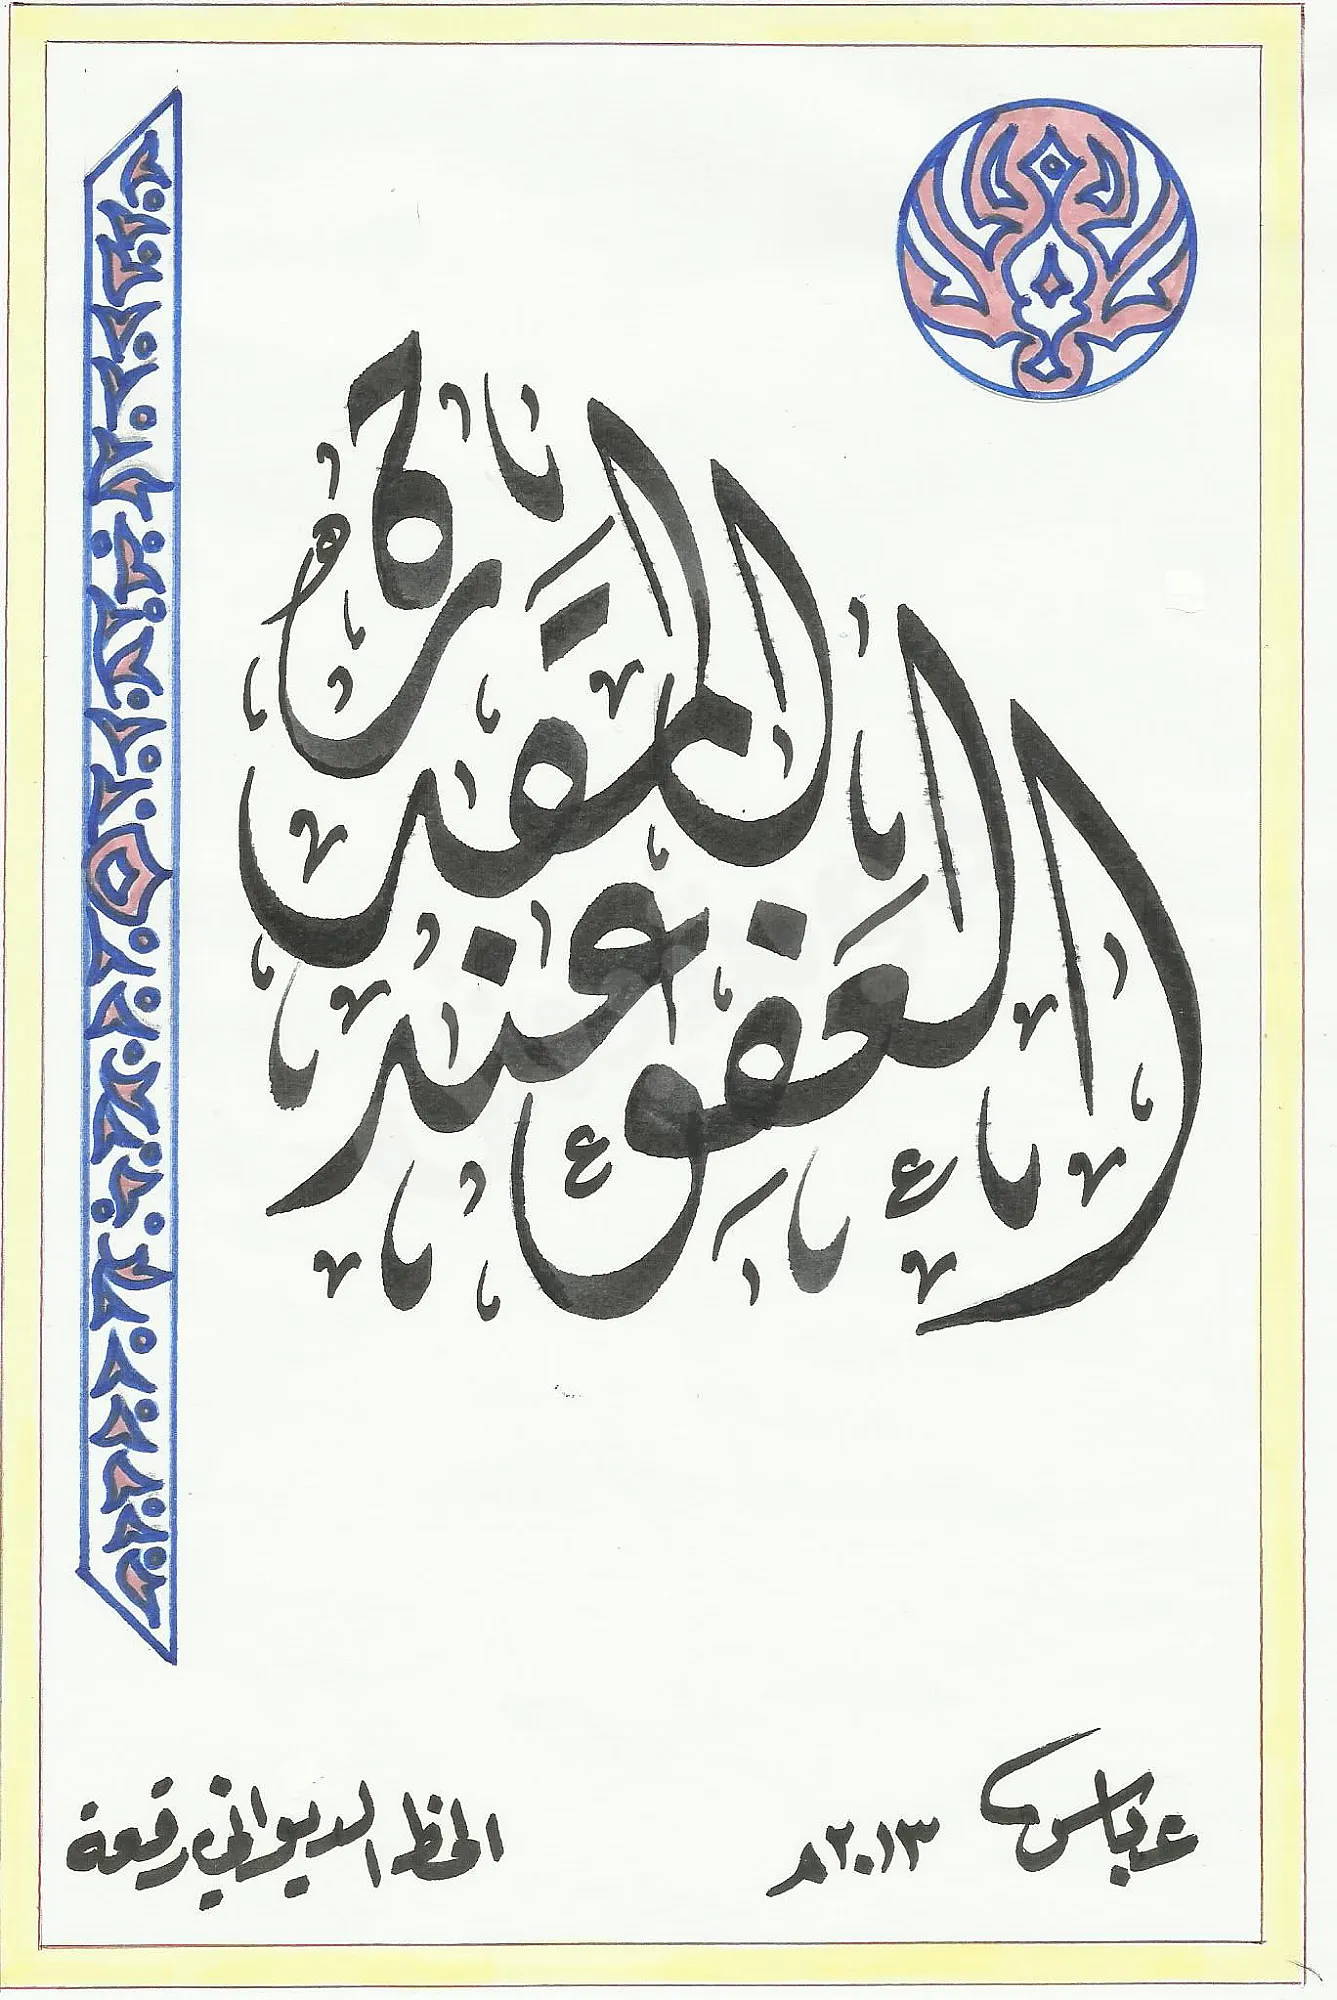 العفو عند المقدرة
عباس ٢٠١٣م
الخط الديواني رقعة